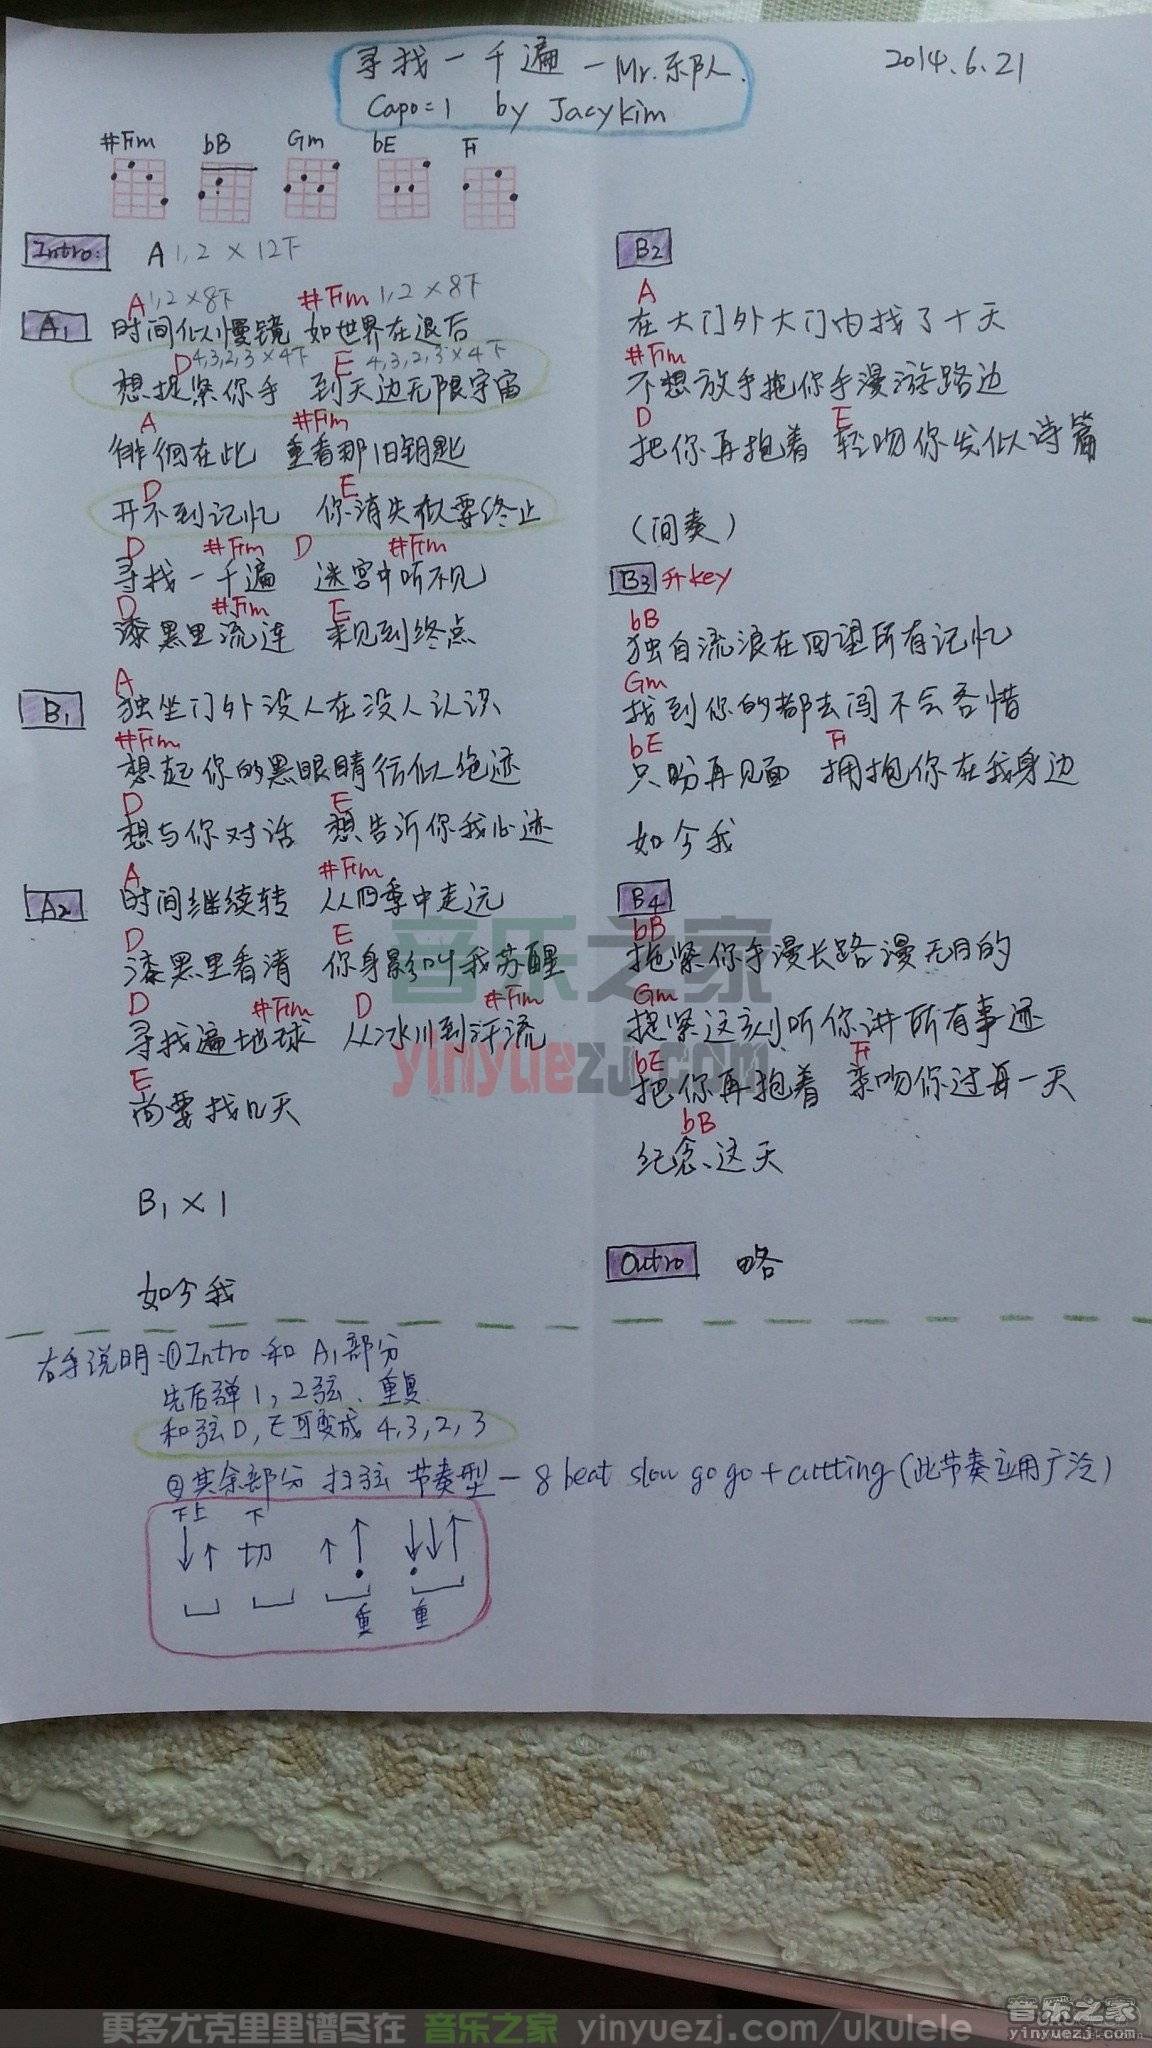 寻找一千遍 - Mr.乐队.
2014.6.21
Capo=1 by Jacykim
#Fm bB Gm bE F
Intro: A 1,2 × 12下
A 1,2 × 8下 #Fm 1,2 × 8下
A1 时间似慢镜 如世界在退后
D 4,3,2,3 × 4下 E 4,3,2,3 × 4下
想捉紧你手 到天边无限宇宙
A #Fm
徘徊在此 重看那旧钥匙
D E
开不到记忆 你消失狀要终止
D #Fm D #Fm
寻找一千遍 迷宫中听不见
D #Fm E
漆黑里流连 未见到终点
A
B1 独坐门外没人在没人认识
#Fm
想起你的黑眼睛行似绝迹
D E
想与你对话 想告诉你我心迹
A #Fm
A2 时间继续转 从四季中走远
D E
漆黑里看清 你身影叫我苏醒
D #Fm D #Fm
寻找遍地球 从冰川到汗流
E
尚要找几天
B1 × 1
如今我
B2
A
在大门外大门内找了十天
#Fm
不想放手拖你手漫游路边
D E
把你再抱着 轻吻你发似诗篇
(间奏)
B3 升key
bB
独自流浪在回望所有记忆
Gm
找到你的都去闯不会吝惜
bE F
只盼再见面 拥抱你在我身边
如今我
B4
bB
拖紧你手漫长路漫无目的
Gm
捉紧这刻听你讲所有事迹
bE F
把你再抱着 亲吻你过每一天
bB
纪念这天
Outro 略
音乐之家
yinyuezj.com
右手说明:①Intro 和 A1部分
先后弹1,2弦、重复
和弦D,E可变成 4,3,2,3
②其余部分 扫弦 节奏型 - 8 beat slow go go + cutting(此节奏应用广泛)
下上 下
↓↑ 切 ↑↑ ↓↓↑
重 重
更多尤克里里谱尽在 音乐之家 yinyuezj.com/ukulele
音乐之家
yinyuezj.com